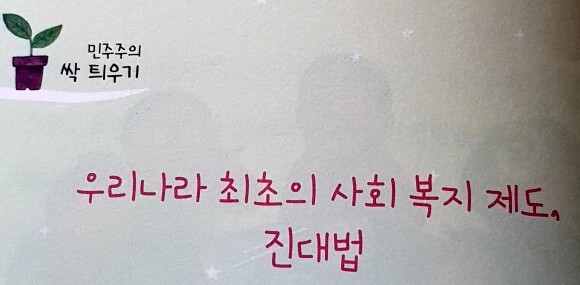 민주주의
싹 틔우기
우리나라 최초의 사회 복지 제도,
진대법